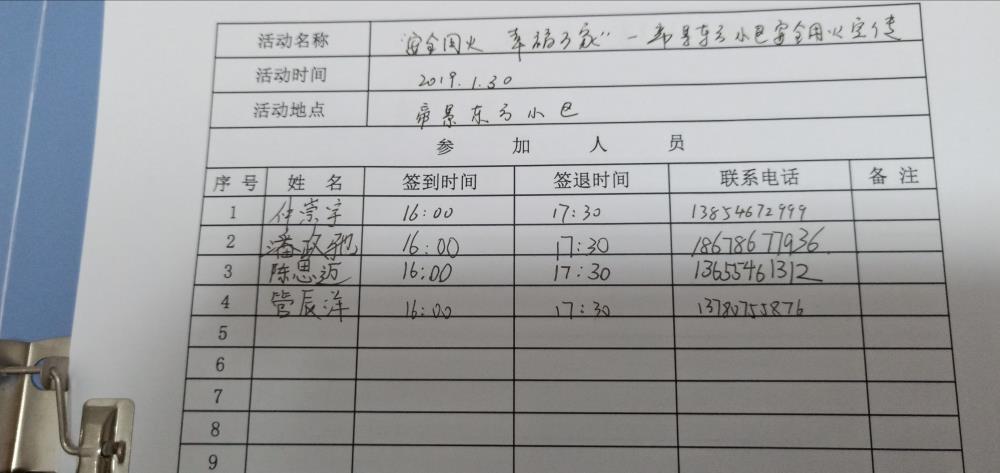 活动名称 "安全用火 幸福万家"－帝景东方小区安全用火宣传
活动时间 2019.1.30
活动地点 帝景东方小区
参加人员
序号 姓名 签到时间 签退时间 联系电话 备注
1 仲崇宇 16:00 17:30 13854672999
2 潘政 16:00 17:30 18678677936
3 陈思迈 16:00 17:30 13655461312
4 管辰洋 16:00 17:30 13780755876
5
6
7
8
9